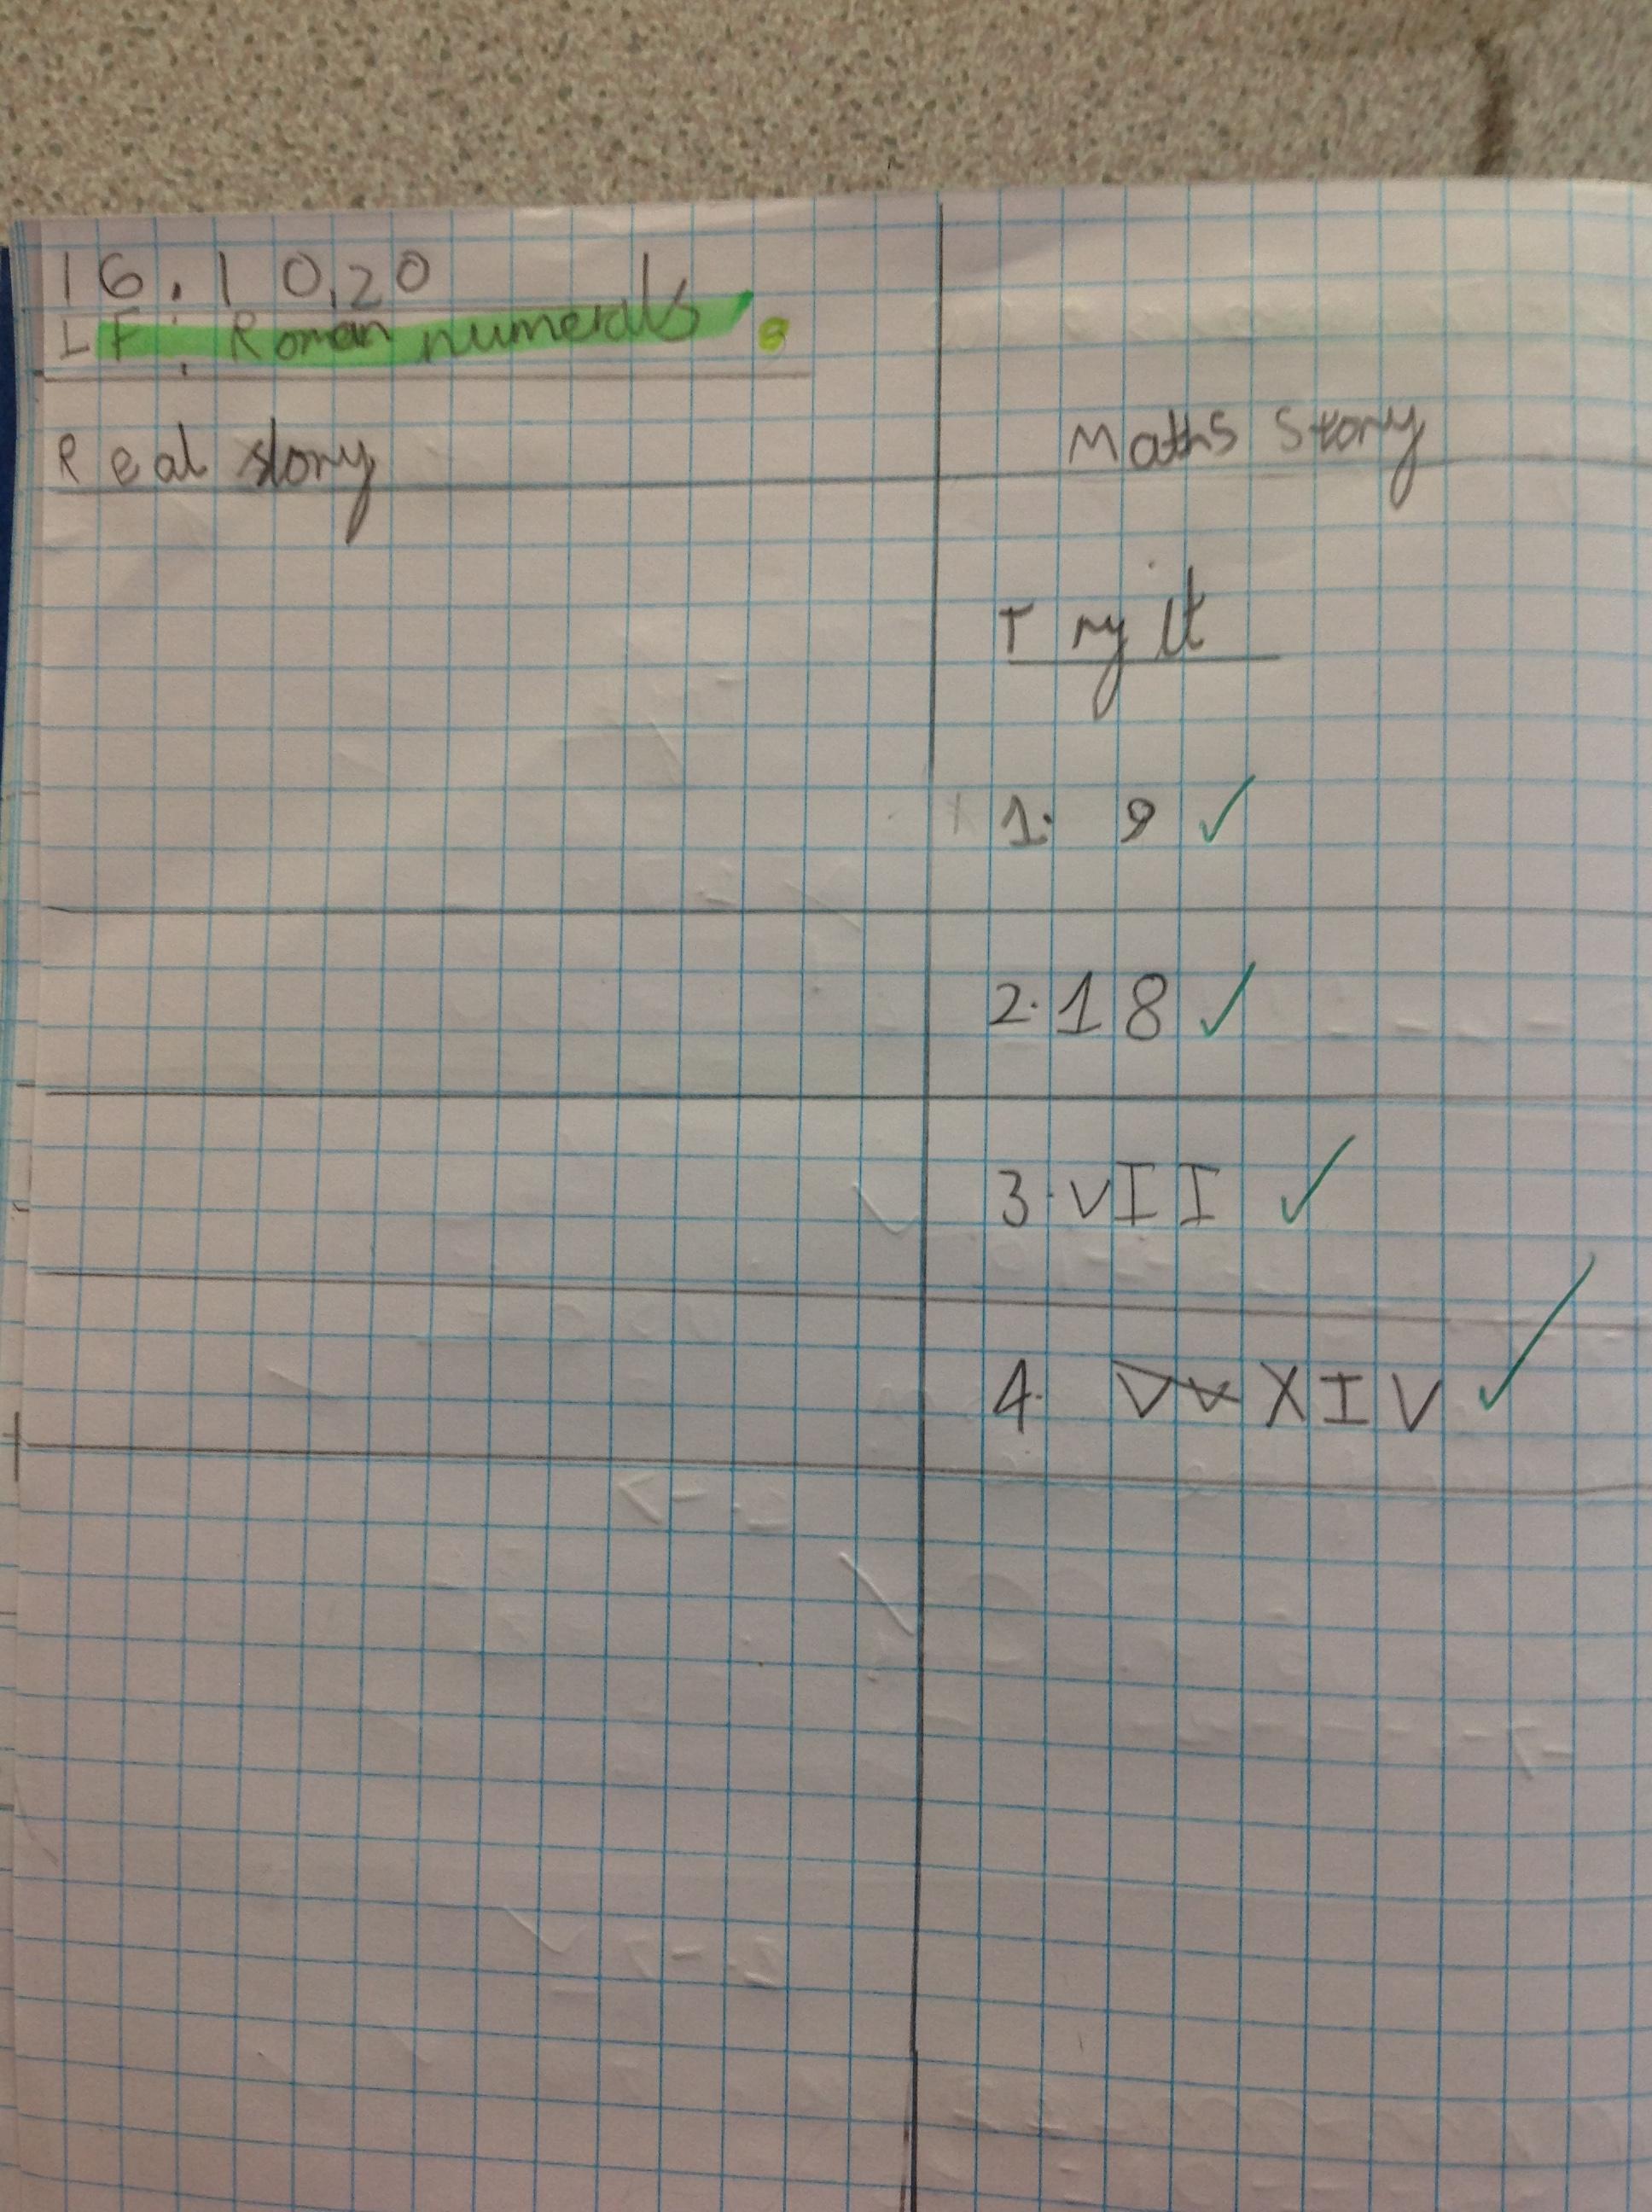 16.10.20
LF: Roman numerals.
Real story
Maths Story
Try it
1. 9 ✓
2. 18 ✓
3. VII ✓
4. XIV ✓